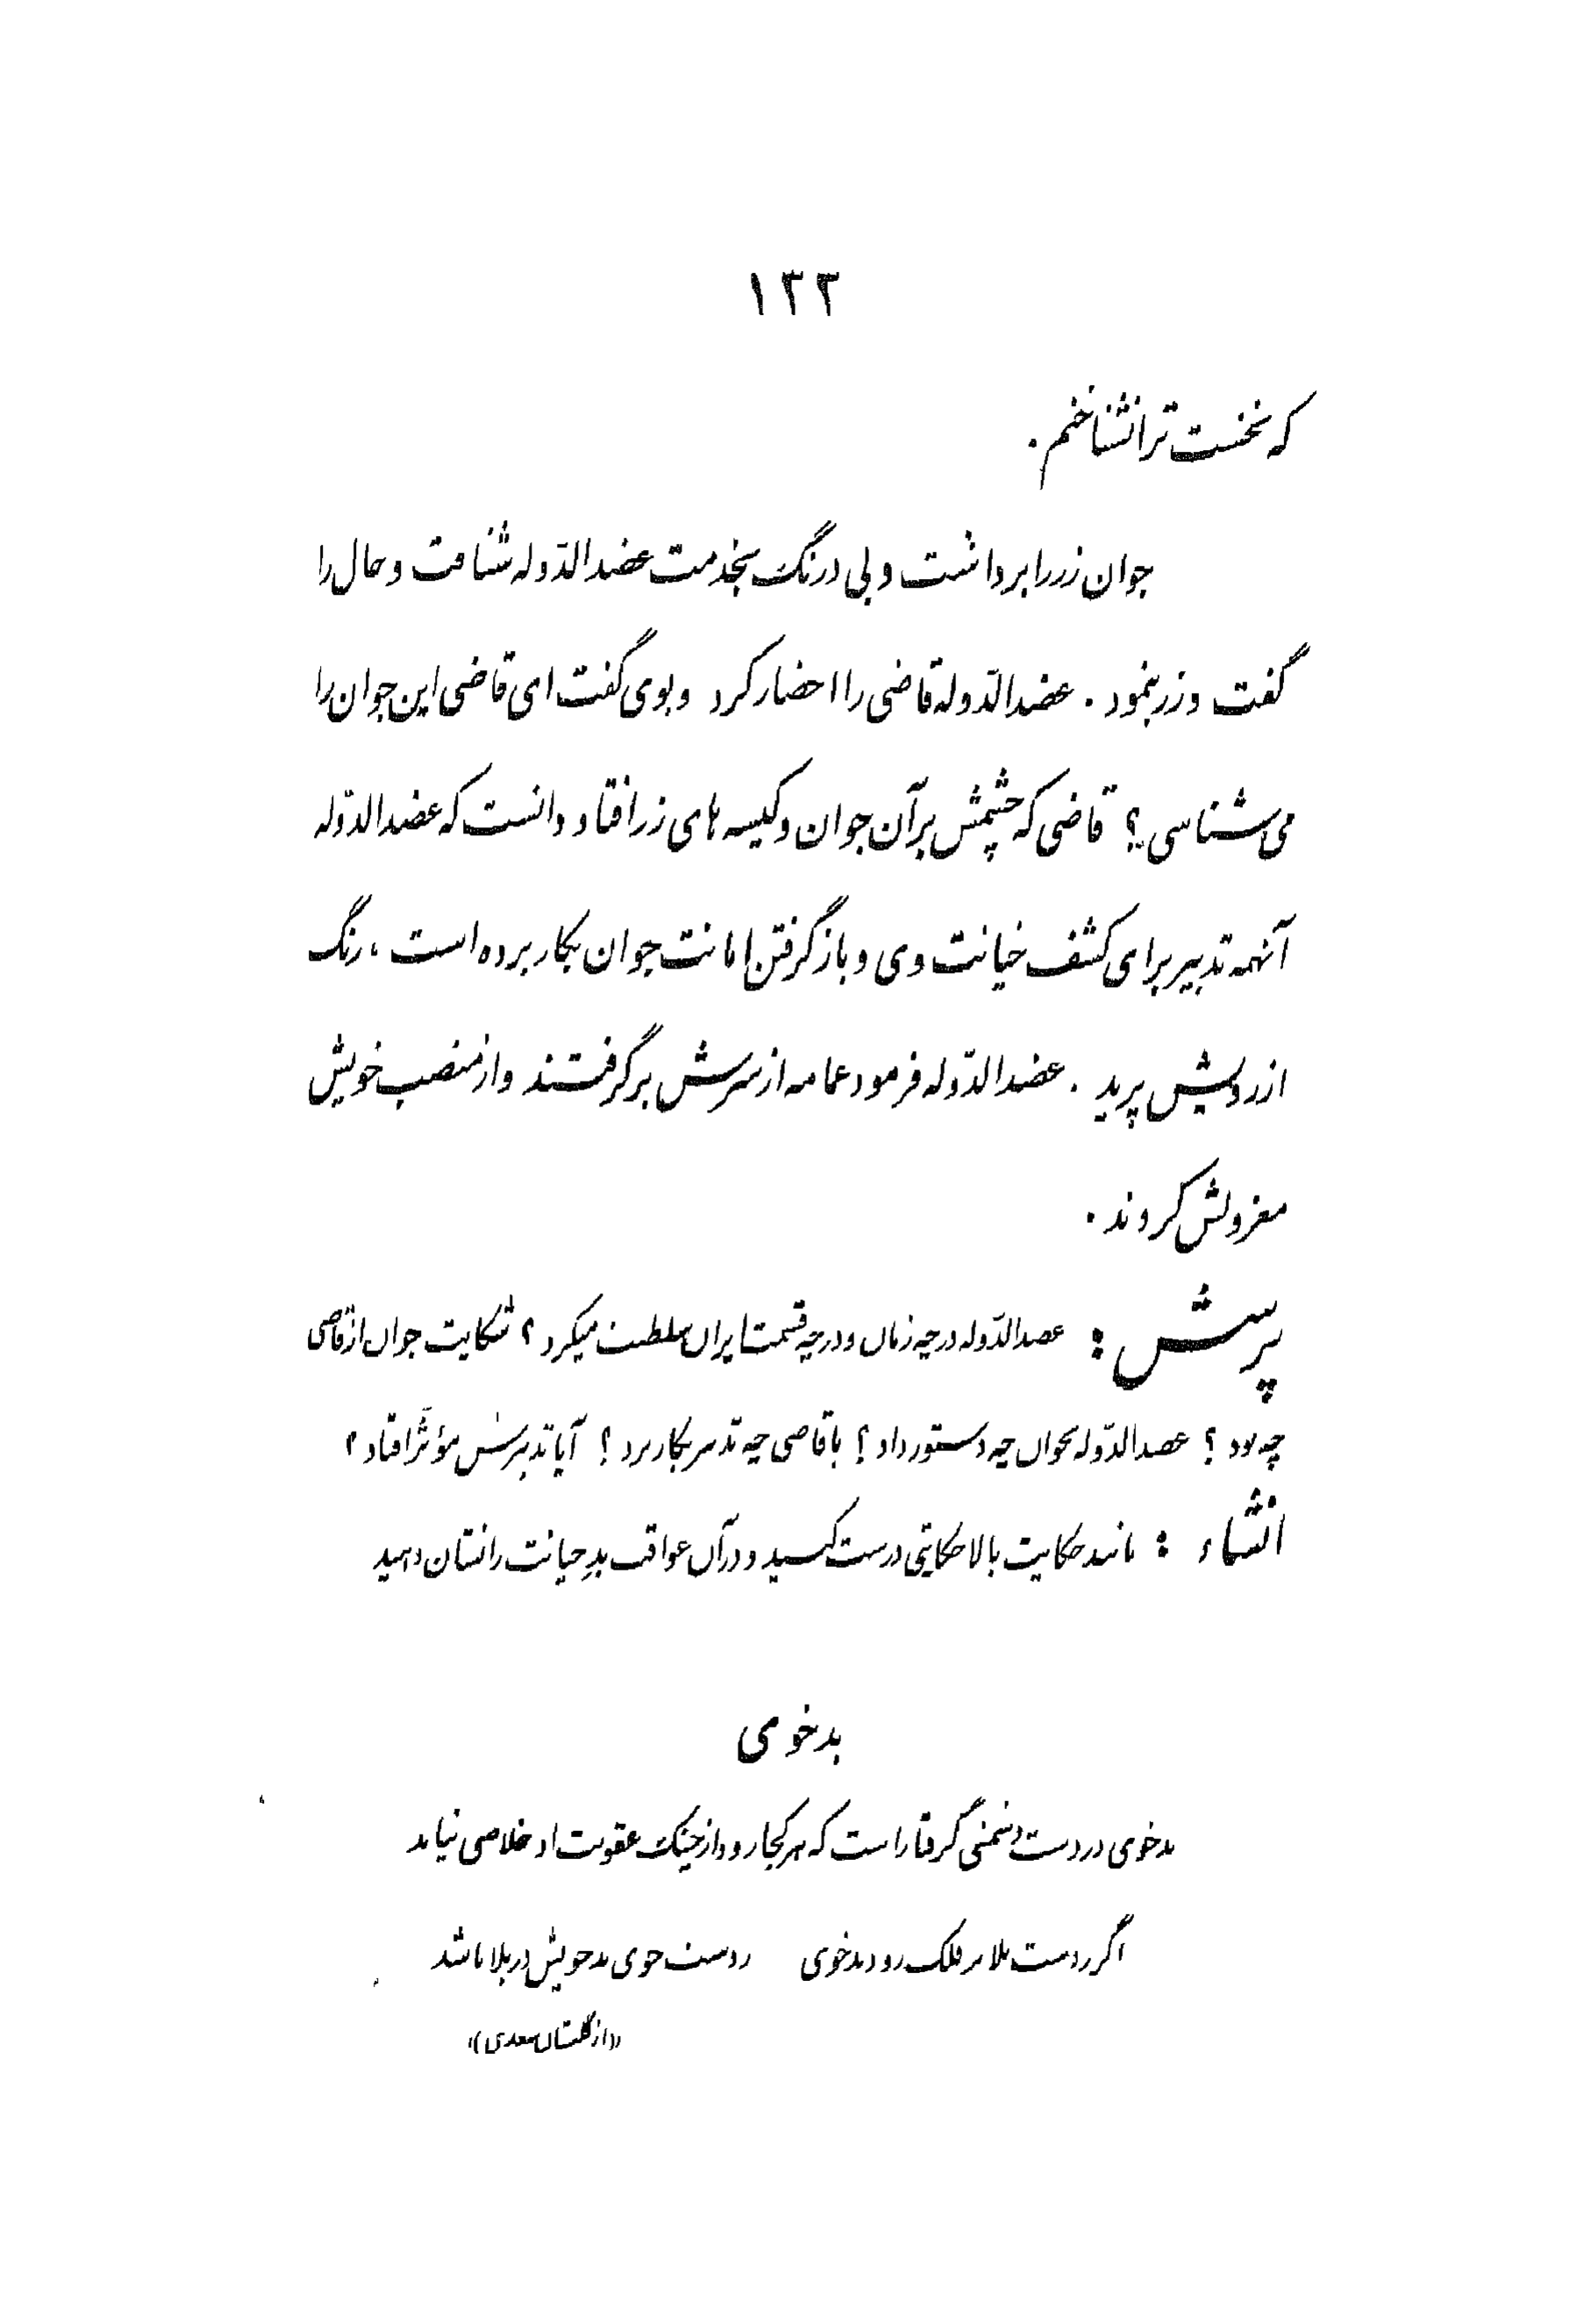 ۱۳۳
که نخست ترا نشناختم .
جوان زر را برداشت و بی درنگ بخدمت عضدالدّوله شتافت و حال را
گفت و زر بنمود . عضدالدّوله قاضی را احضار کرد و بوی گفت ای قاضی این جوان را
می شناسی ؟ قاضی که چشمش بر آن جوان و کیسه های زر افتاد و دانست که عضدالدّوله
آنهمه تدبیر برای کشف خیانت وی و باز گرفتن امانت جوان بکار برده است ، رنگ
از رویش پرید . عضدالدّوله فرمود عمامه از سرش بر گرفتند و از منصب خویش
معزولش کردند .
پرسش : عضدالدّوله در چه زمان و در چه قسمت ایران سلطنت میکرد ؟ شکایت جوان از قاضی
چه بود ؟ عضدالدّوله بجوان چه دستور داد ؟ با قاضی چه تدبیر بکار برد ؟ آیا تدبیرش مؤثّر افتاد ؟
انشاء : مانند حکایت بالا حکایتی درست کنید و در آن عواقب بدِ خیانت را نشان دهید
بدخوی
بدخوی در دست دشمنی گرفتار است که هر کجا رود از چنگ عقوبت او خلاصی نیابد
اگر ز دست بلا بر فلک رود بدخوی ز دست خوی بد خویش در بلا باشد
((از گلستان سعدی))